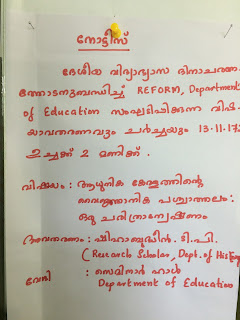 നോട്ടീസ്
ദേശീയ വിദ്യാഭ്യാസ ദിനാചരണ
ത്തോടനുബന്ധിച്ച് REFORM, Department
of Education സംഘടിപ്പിക്കുന്ന വിഷ-
യാവതരണവും ചർച്ചയും 13.11.17
ഉച്ചക്ക് 2 മണിക്ക്.
വിഷയം : ആധുനിക കേരളത്തിന്റെ
വൈജ്ഞാനിക പശ്ചാത്തലം:
ഒരു ചരിത്രാന്വേഷണം
അവതരണം : ഷിഹാബുദ്ധീൻ. ടി.പി.
(Research Scholar, Dept. of History
വേദി : സെമിനാർ ഹാൾ
Department of Education